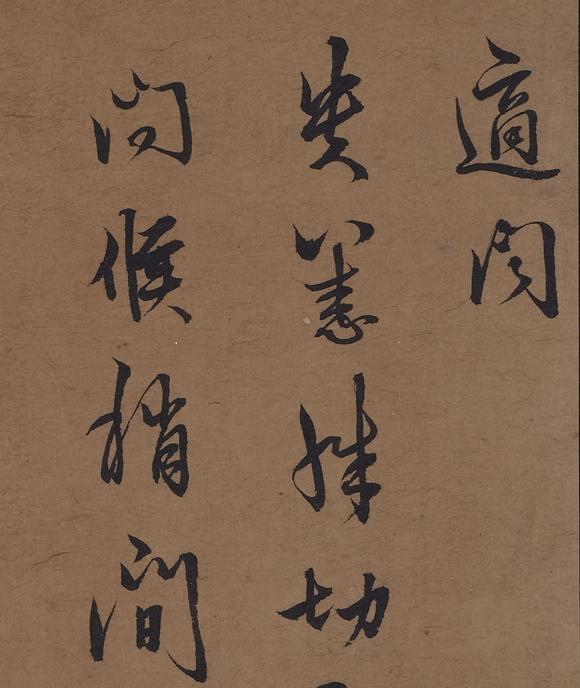 適聞
貴恙殊切
問候稍間